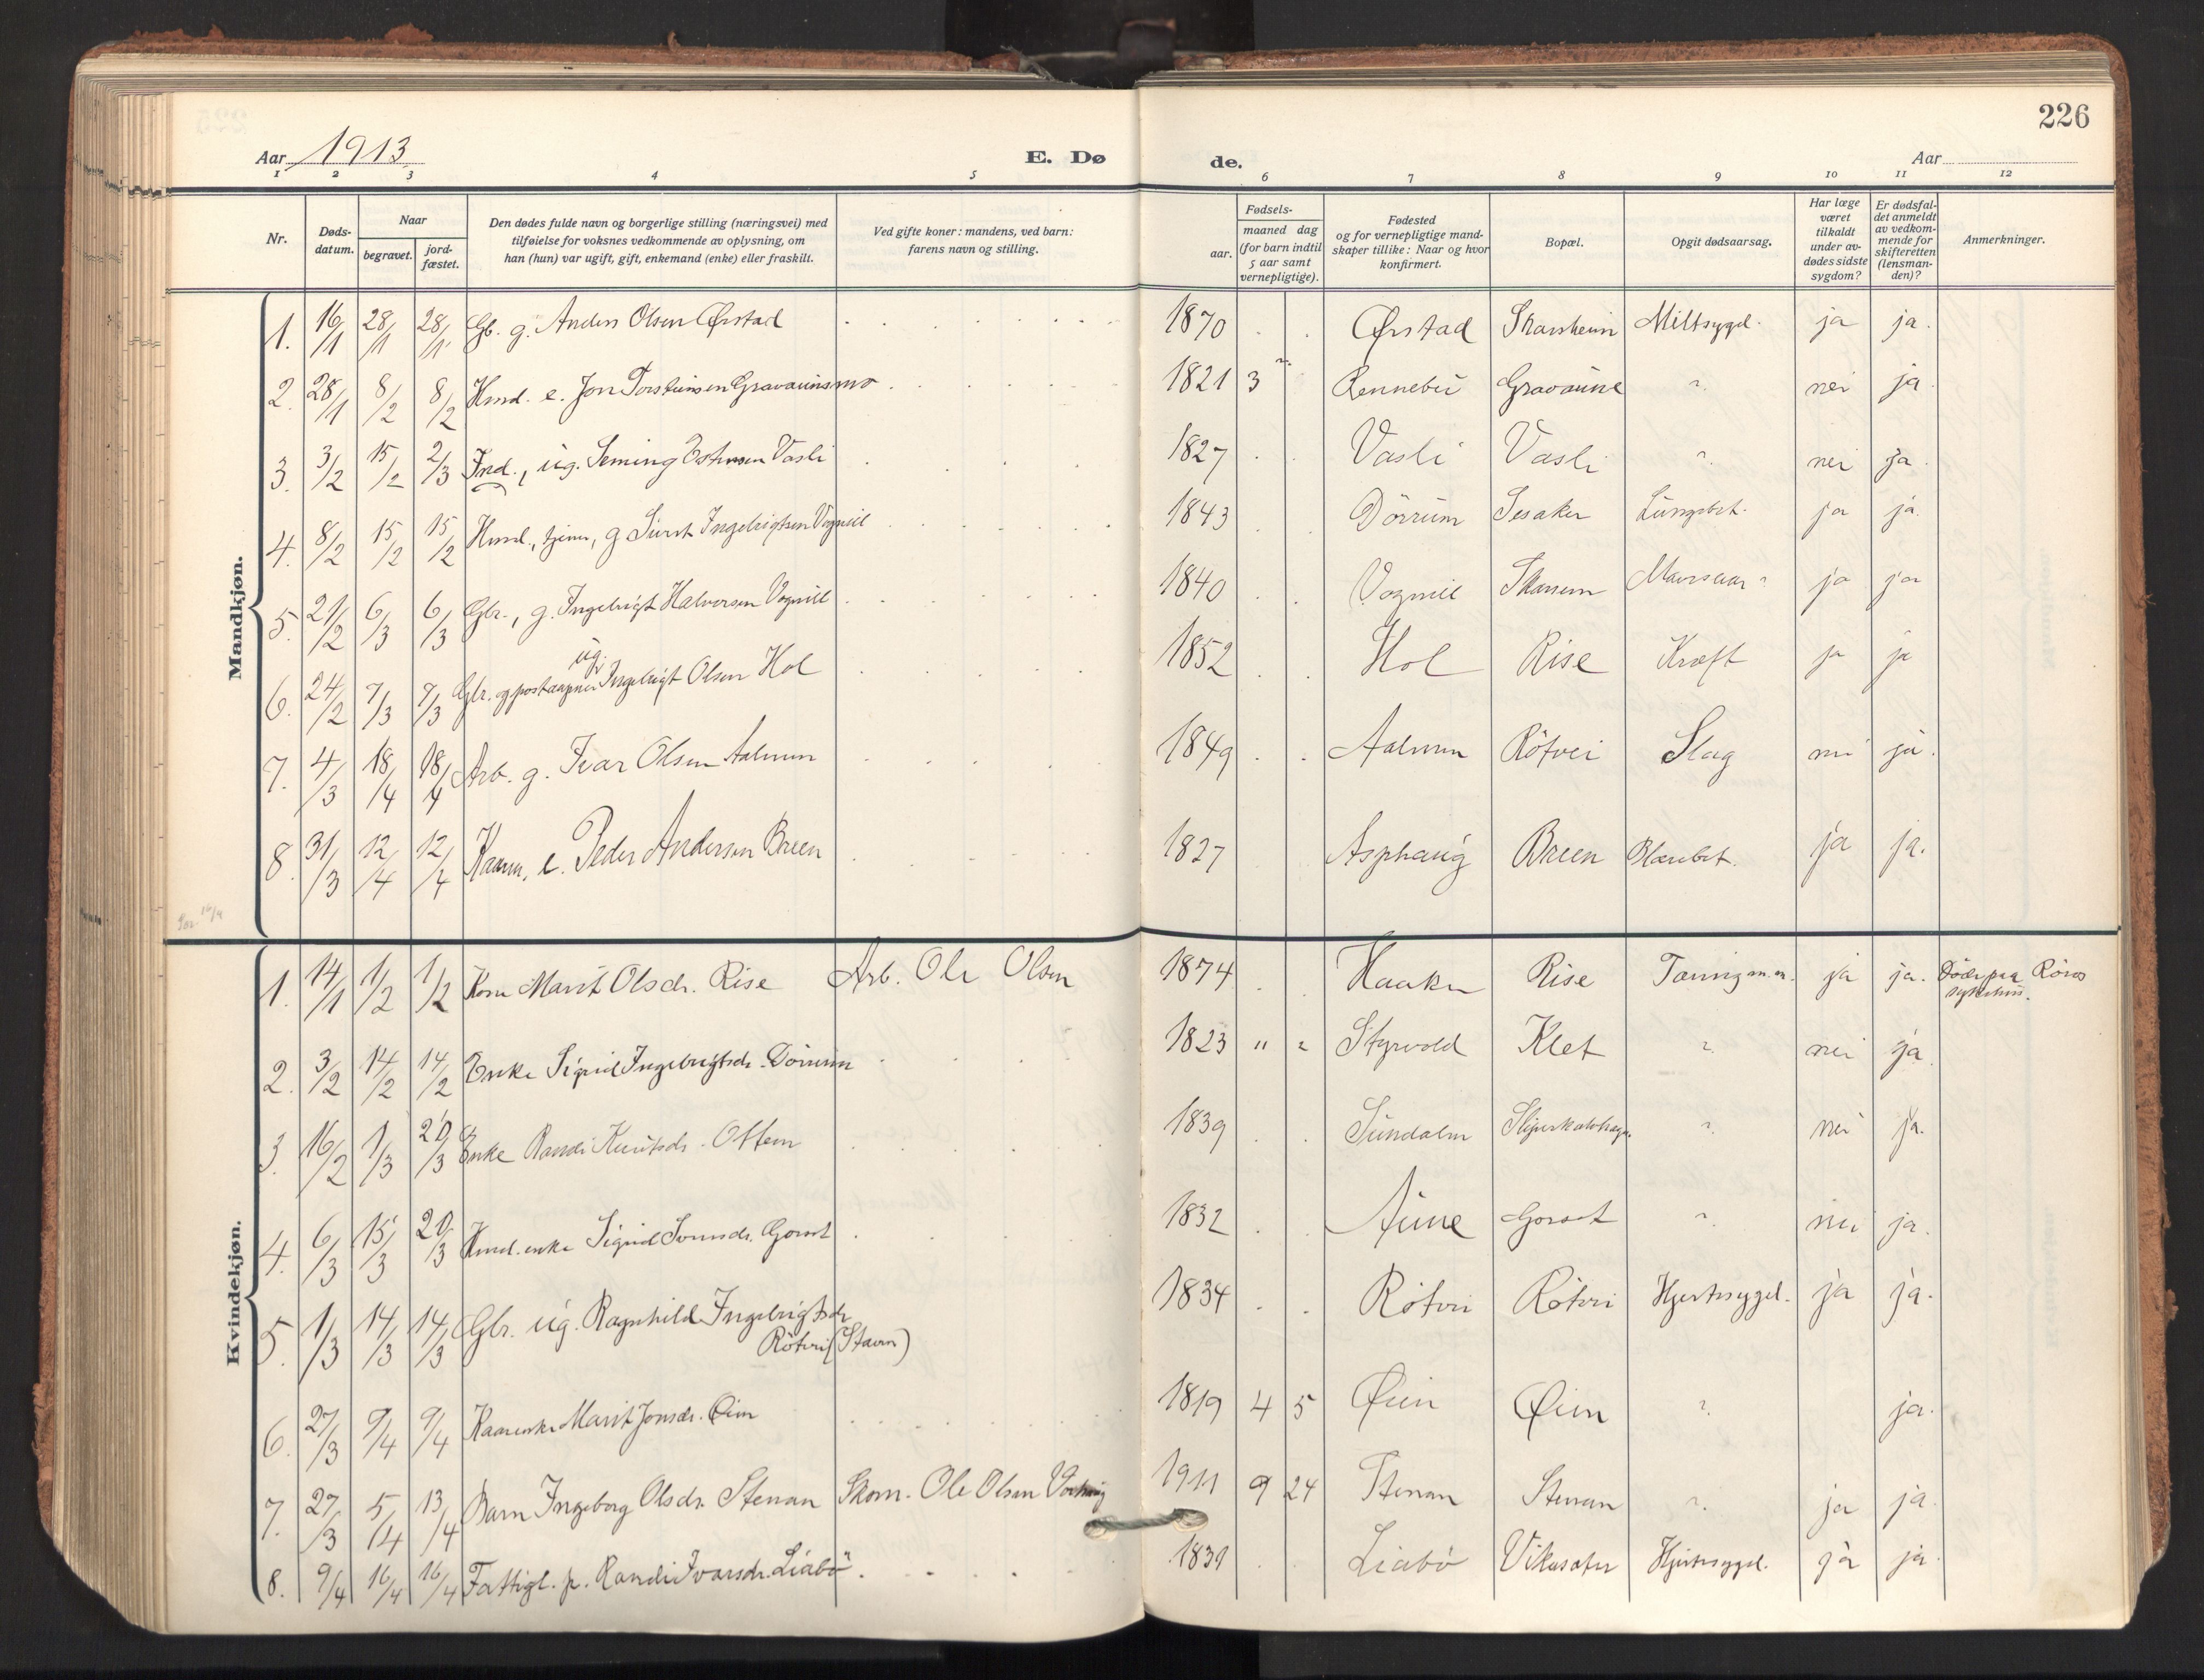 226
Aar 1913
E. Dø
de.
Aar
1 2 3 4 5 6 7 8 9 10 11 12
Nr.
Døds-
datum.
Naar
begravet.
jord-
fæstet.
Den dødes fulde navn og borgerlige stilling (næringsvei) med
tilføielse for voksnes vedkommende av oplysning, om
han (hun) var ugift, gift, enkemand (enke) eller fraskilt.
Ved gifte koner: mandens, ved barn:
farens navn og stilling.
Fødsels-
aar.
maaned dag
(for barn indtil
5 aar samt
vernepligtige).
Fødested
og for vernepligtige mand-
skaper tillike: Naar og hvor
konfirmert.
Bopæl.
Opgit dødsaarsag.
Har læge
været
tilkaldt
under av-
dødes sidste
sygdom?
Er dødsfal-
det anmeldt
av vedkom-
mende for
skifteretten
(lensman-
den)?
Anmerkninger.
Mandkjøn.
1. 16/1 28/1 28/1 Gb. g. Anders Olsen Ørstad 1870 Ørstad Skarsheim Miltsygd. ja ja.
2. 28/1 8/2 8/2 Hmd. e. Jon Torsteinsen Gravaunsmo 1821 3 Rennebu Gravaune ? nei ja.
3. 3/2 15/2 2/3 Ind., ug. Seming Estensen Vasli 1827 Vasli Vasli ? nei ja.
4. 8/2 15/2 15/2 Hmd., tjener, g Sivert Ingebrigtsen Vognill 1843 Dørrum Sesaker Lungebet. ja ja.
5. 21/2 6/3 6/3 Gbr., g. Ingebrigt Halvorsen Vognill 1840 Vognill Skarsem Mavesaar ? ja ja
6. 24/2 7/3 7/3 Gbr. og postaapner ug. Ingebrigt Olsen Hol 1852 Hol Rise Kræft ja ja
7. 4/3 18/4 18/4 Arb. g. Ivar Olsen Aalmen 1849 Aalmen Røtvei Slag nei ja.
8. 31/3 12/4 12/4 Kaarm. e. Peder Andersen Breen 1827 Asphaug Breen Blærebet. ja ja.
Kvindekjøn.
1. 14/1 1/2 1/2 Kone Marit Olsdr. Rise Arb. Ole Olsen 1874 Haaker Rise Tæring m. m. ja ja. Døde paa Røros
sykehus.
2. 3/2 14/2 14/2 Enke Sigrid Ingebrigtsdr. Dørrum 1823 " " Styrvold Klet ? nei ja.
3. 16/2 1/3 20/3 Enke Randi Knutsdr. Ottem 1839 Sundalen ? nei ja.
4. 6/3 15/3 20/3 Hmd. enke Sigrid Gorset 1832 Aune Gorset ? nei ja.
5. 1/3 14/3 14/3 Gbr. ug. Ragnhild Ingebrigtsdr
Røtvei (Stavn) 1834 Røtvei Røtvei Hjertesygd. ja ja.
6. 27/3 9/4 9/4 Kaarenke Marit Jonsdr. Øien 1819 4 5 Øien Øien ? ja.
7. 27/3 5/4 13/4 Barn Ingeborg Olsdr. Stenan Skom. Ole Olsen 1911 9 24 Stenan Stenan ? ja ja.
8. 9/4 16/4 16/4 Fattigl. p. Randi Ivarsdr. Liabø. 1839 Liabø Vikasæter Hjertesygd. ja ja.